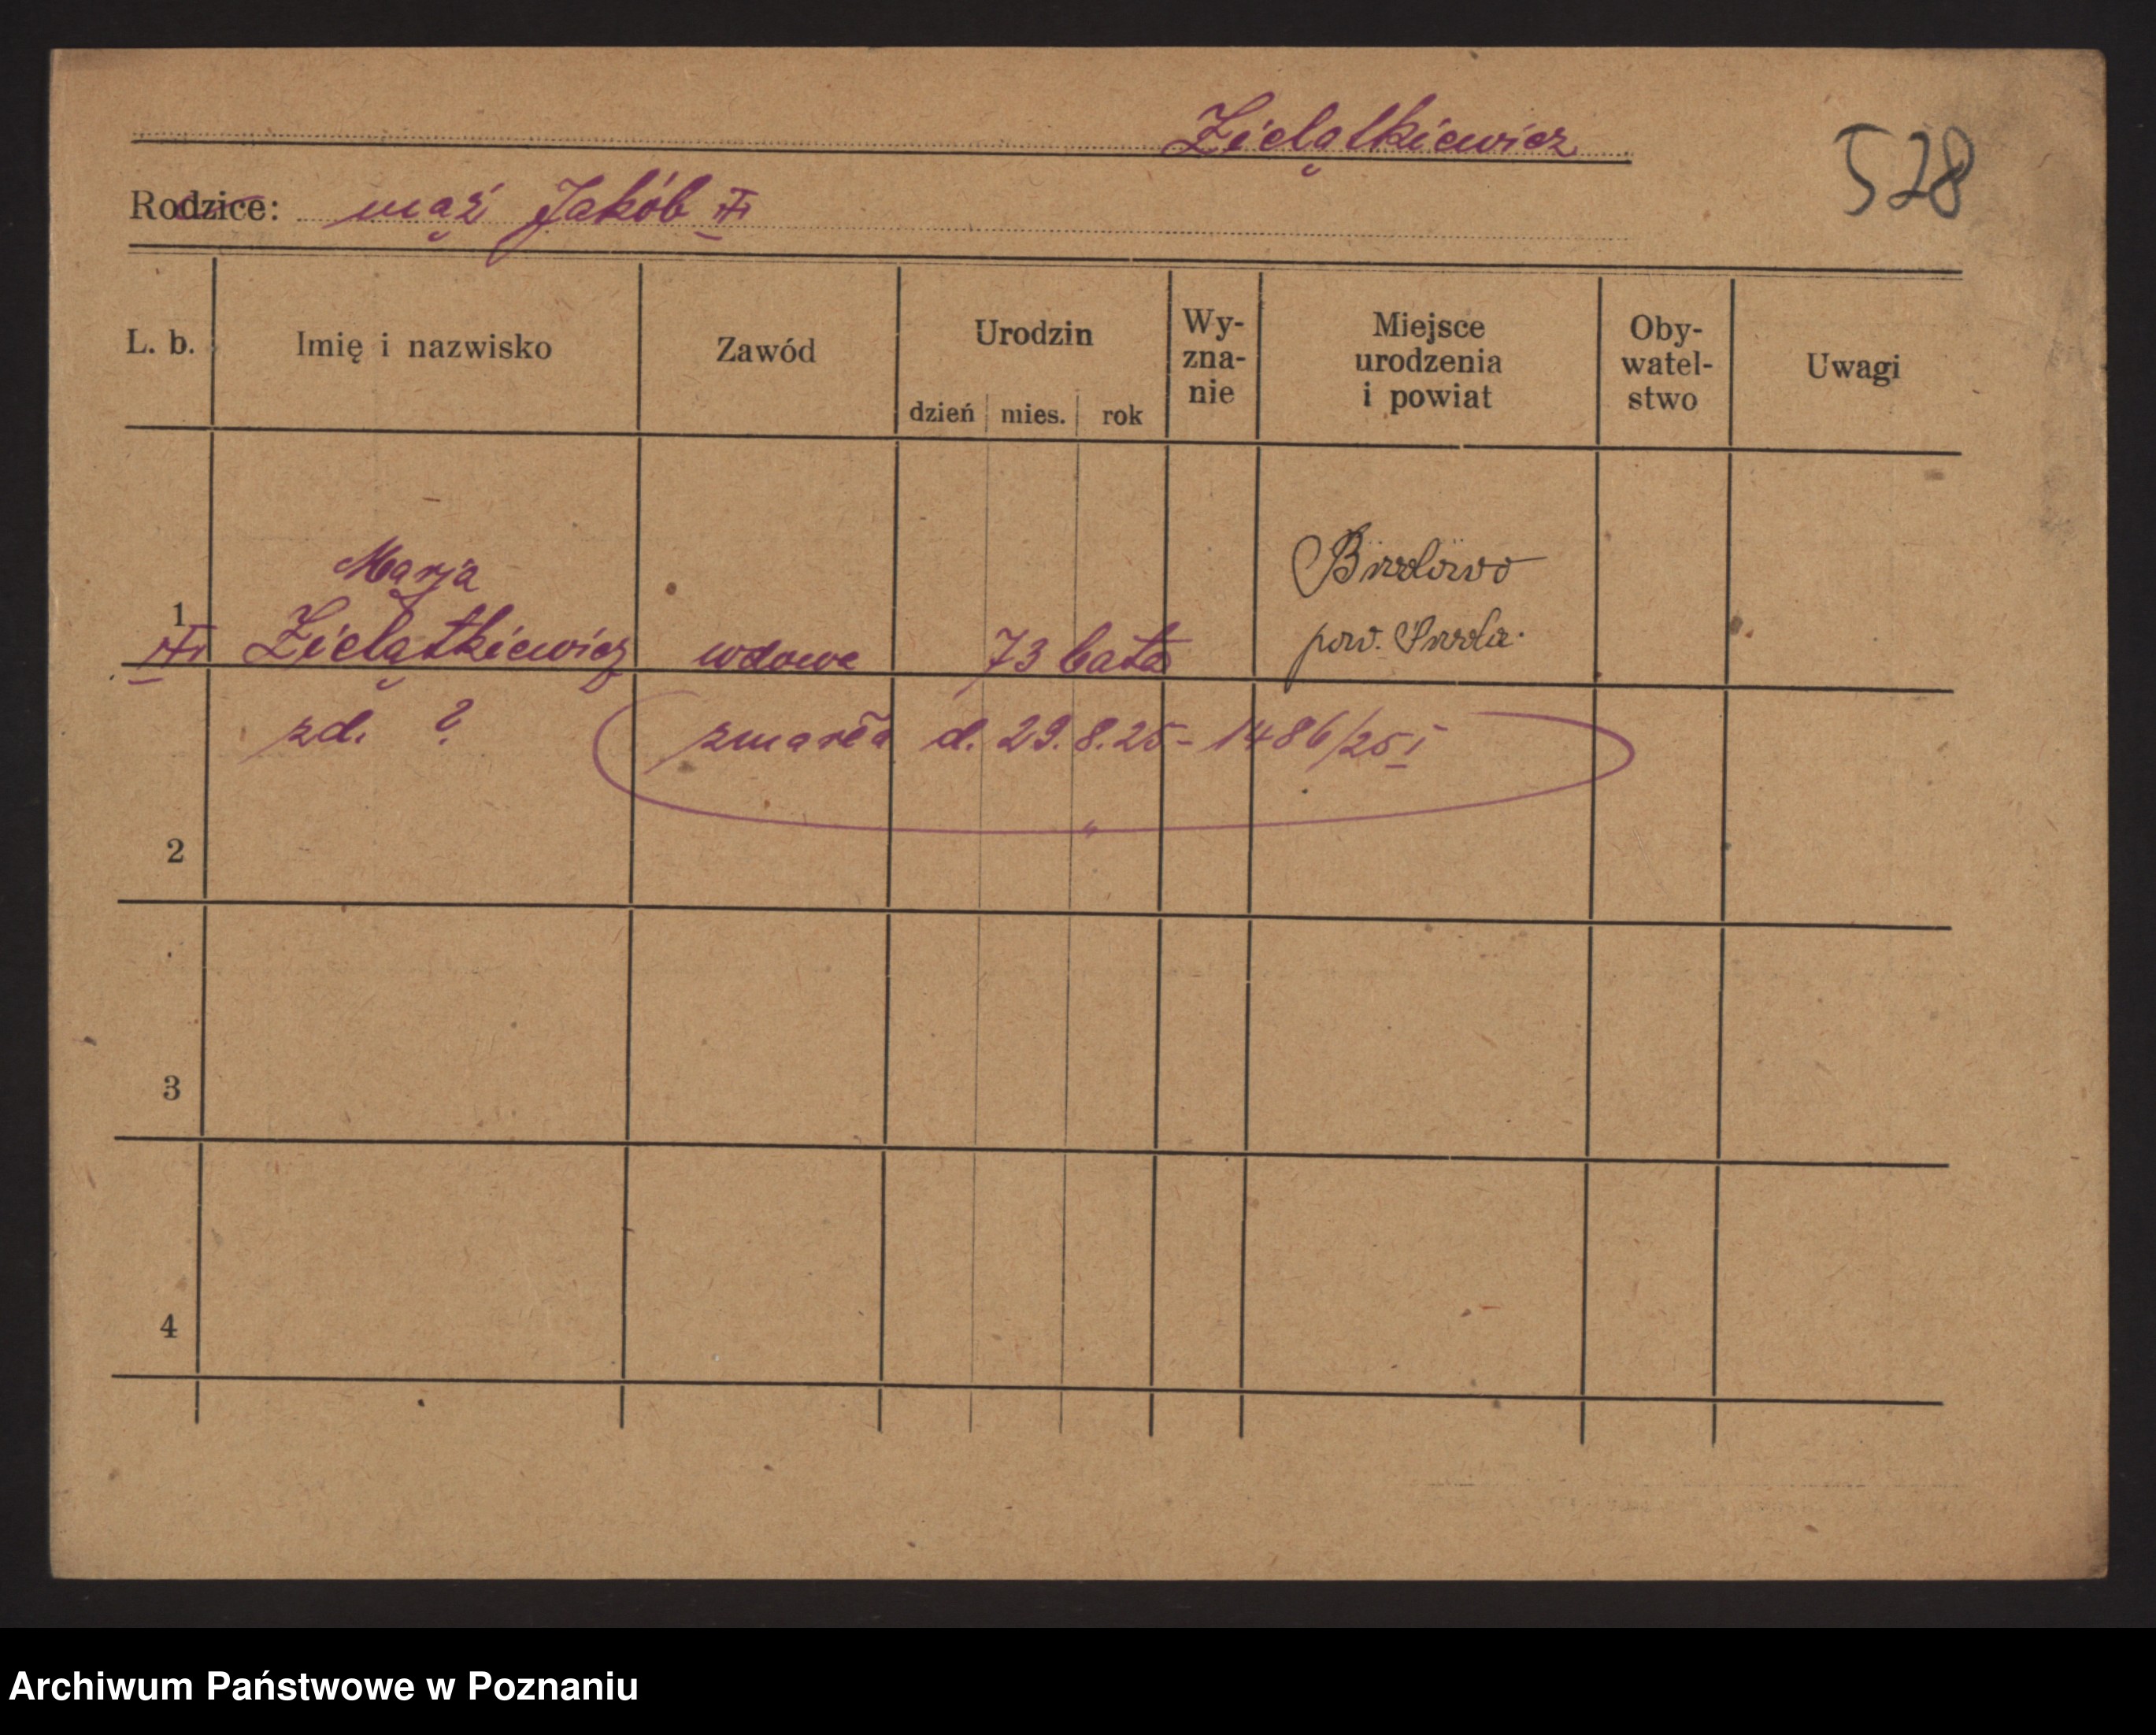 Zielątkiewicz
528
Rodzice: mąż Jakób
L. b. Imię i nazwisko Zawód Urodzin dzień mies. rok Wy-zna-nie Miejsce urodzenia i powiat Oby-watel-stwo Uwagi
Marja
1 Zielątkiewicz wdowa 73 lata
pow.
zd. ? zmarła d. 29.8.25 - 1486/25 I
2
3
4
Archiwum Państwowe w Poznaniu